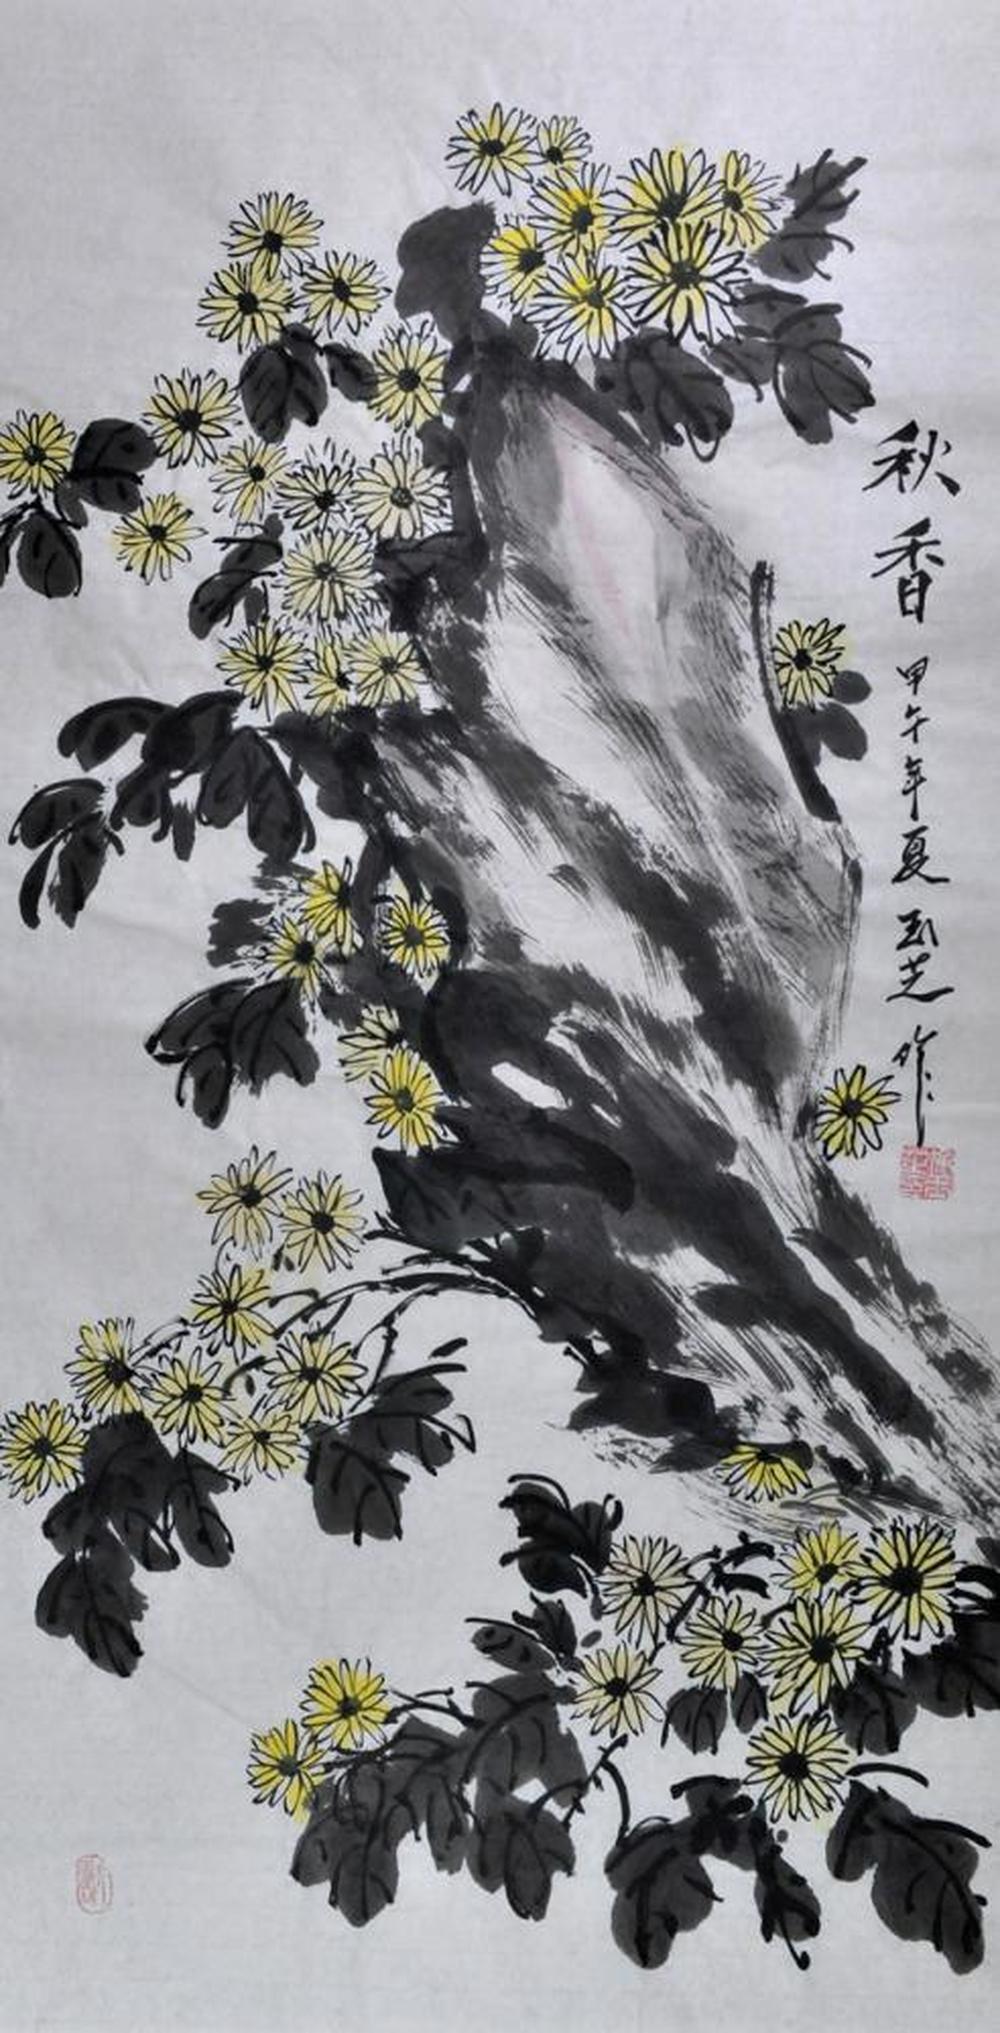 秋香
甲午年夏 玉芝作